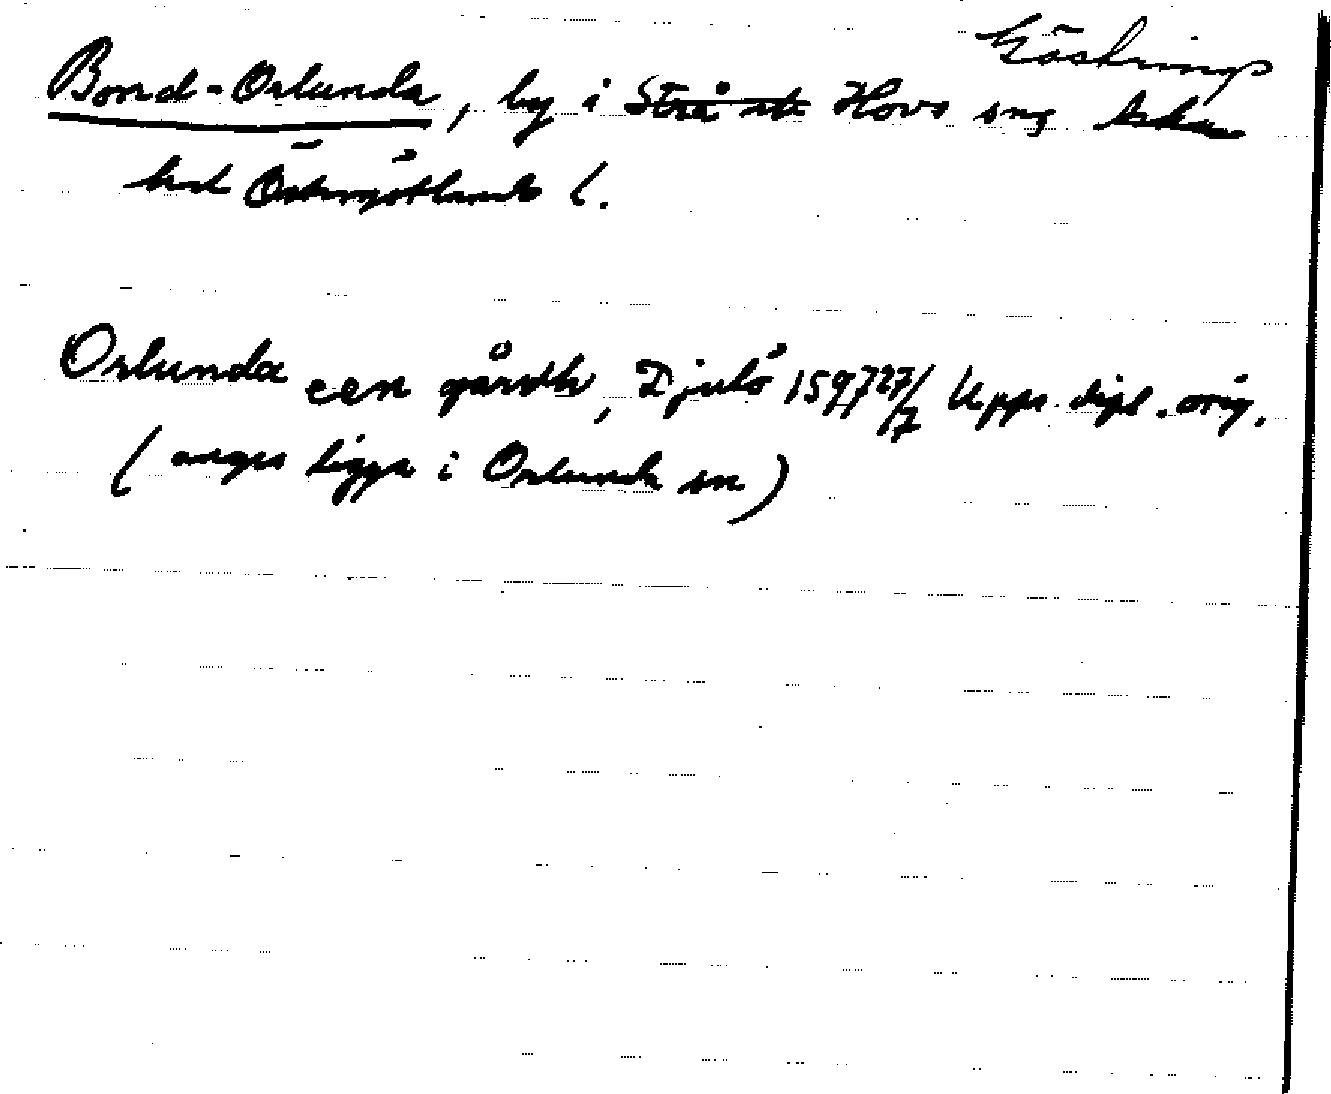 Göstrings
Bond-Orlunda, by i Strå sn Hovs sng Aska
hd Östergötlands l.
Orlunda een gårdh, Djulö 1597 27/7 Upps. dipl. orig.
(anges ligga i Orlunda sn)